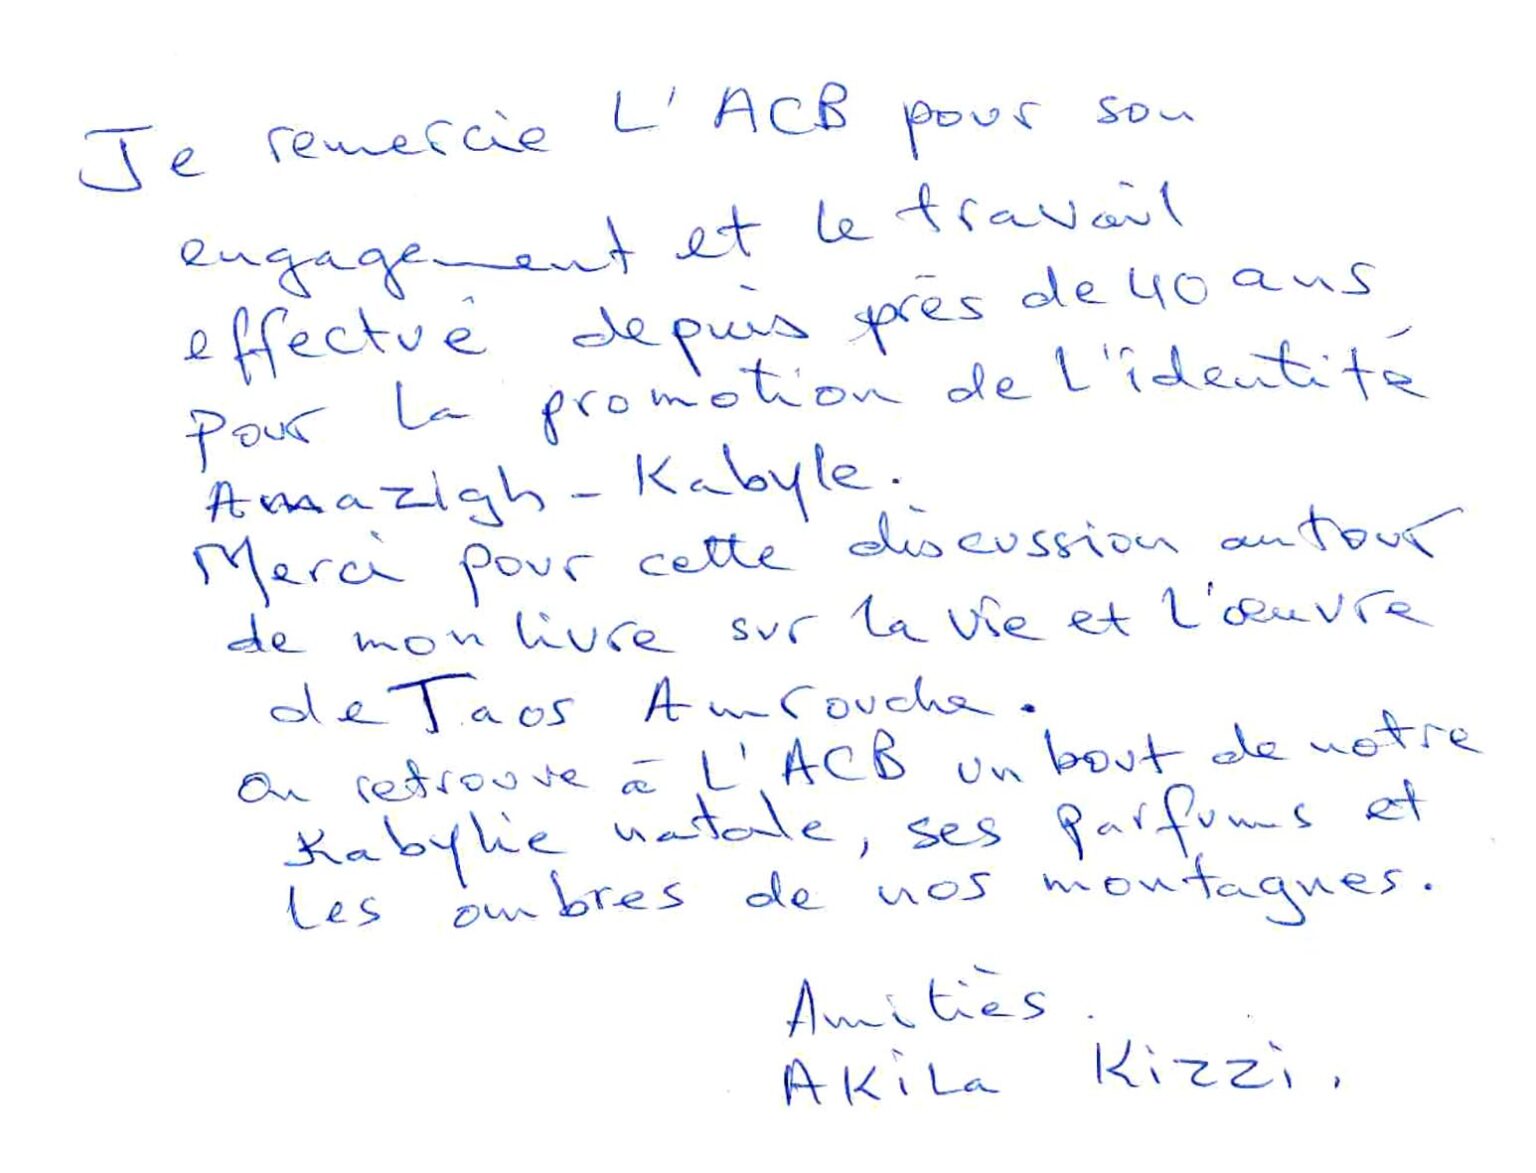 Je remercie L'ACB pour son
engagement et le travail
effectué depuis près de 40 ans
pour la promotion de l'identité
Amazigh - Kabyle.
Merci pour cette discussion autour
de mon livre sur la vie et l'œuvre
de Taos Amrouche.
on retrouve à L'ACB un bout de notre
Kabylie natale, ses parfums et
les ombres de nos montagnes.
Amitiés.
AKiLa Kizzi.